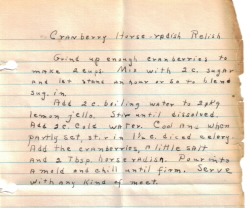 Cranberry Horse-radish Relish
Grind up enough cranberries to
make 2 cups Mix with 2 c. sugar
and let stand an hour or so to blend
sug. in
Add 2 c. boiling water to 2 pkg
lemon jello. Stir until dissolved.
Add 2 c. cold water. Cool and when
partly set, stir in 1½ c. diced celery
Add the cranberries, a little salt
and 2 Tbsp horseradish. Pour into
a mold and chill until firm. Serve
with any kind of meat.